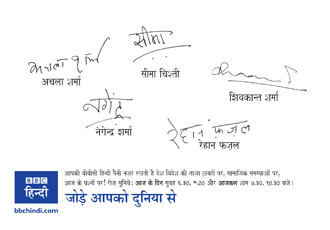 अचला शर्मा
अचला शर्मा
सीमा
सीमा चिश्ती
शिवकान्त शर्मा
नगेंद्र
नगेन्द्र शर्मा
रेहान फ़ज़ल
रेहान फज़ल
आपकी बीबीसी हिन्दी पैनी नज़र रखती है देश विदेश की ताज़ा ख़बरों पर, सामाजिक समस्याओं पर,
आज के प्रश्नों पर! रोज़ सुनिये: आज के दिन सुबह ६.३०, ८.२० और आजकल शाम ७.३०, १०.३० बजे।
BBC
हिन्दी
bbchindi.com
जोड़े आपको दुनिया से